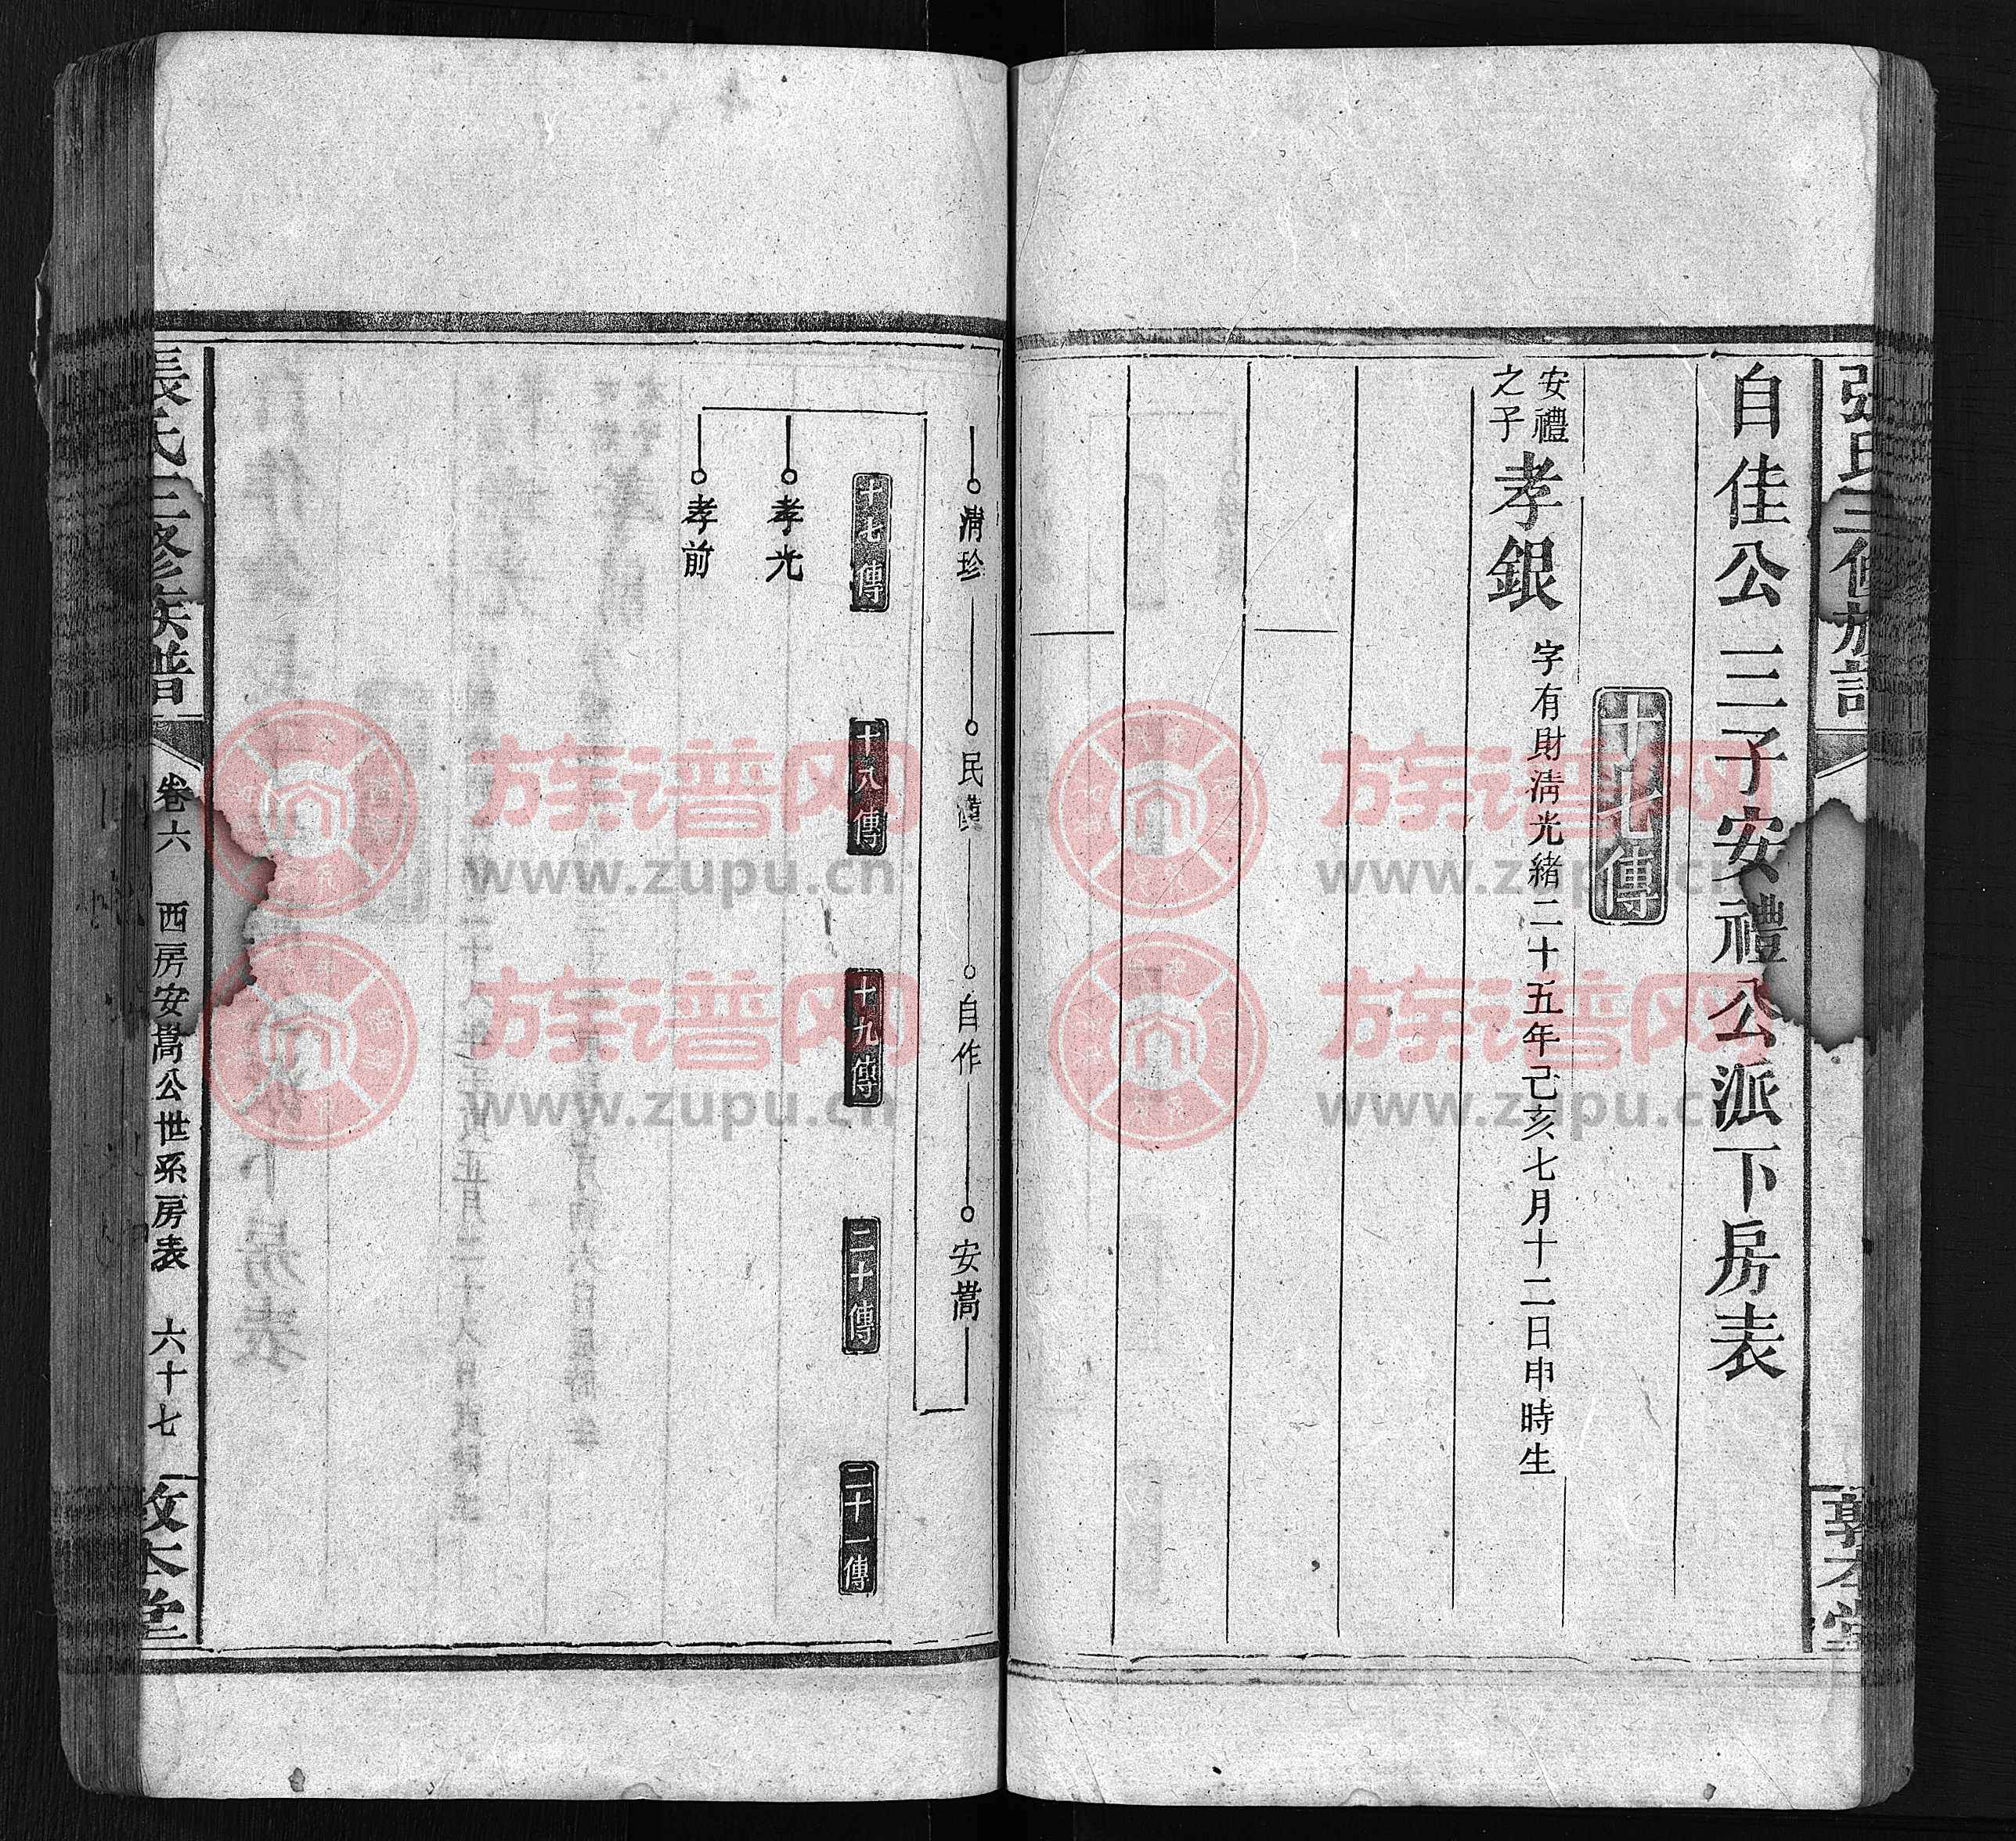 自佳公三子安禮公派下房表
十七傳
安禮
之子
孝銀
字有財淸光緖二十五年己亥七月十二日申時生
淸珍
民
自作
安嵩
十七傳
十八傳
十九傳
二十傳
二十一傳
孝光
孝前
張氏三修族譜
卷六
西房安嵩公世系房表
六十七
敦本堂
族谱网
www.zupu.cn
族谱网
www.zupu.cn
族谱网
www.zupu.cn
族谱网
www.zupu.cn